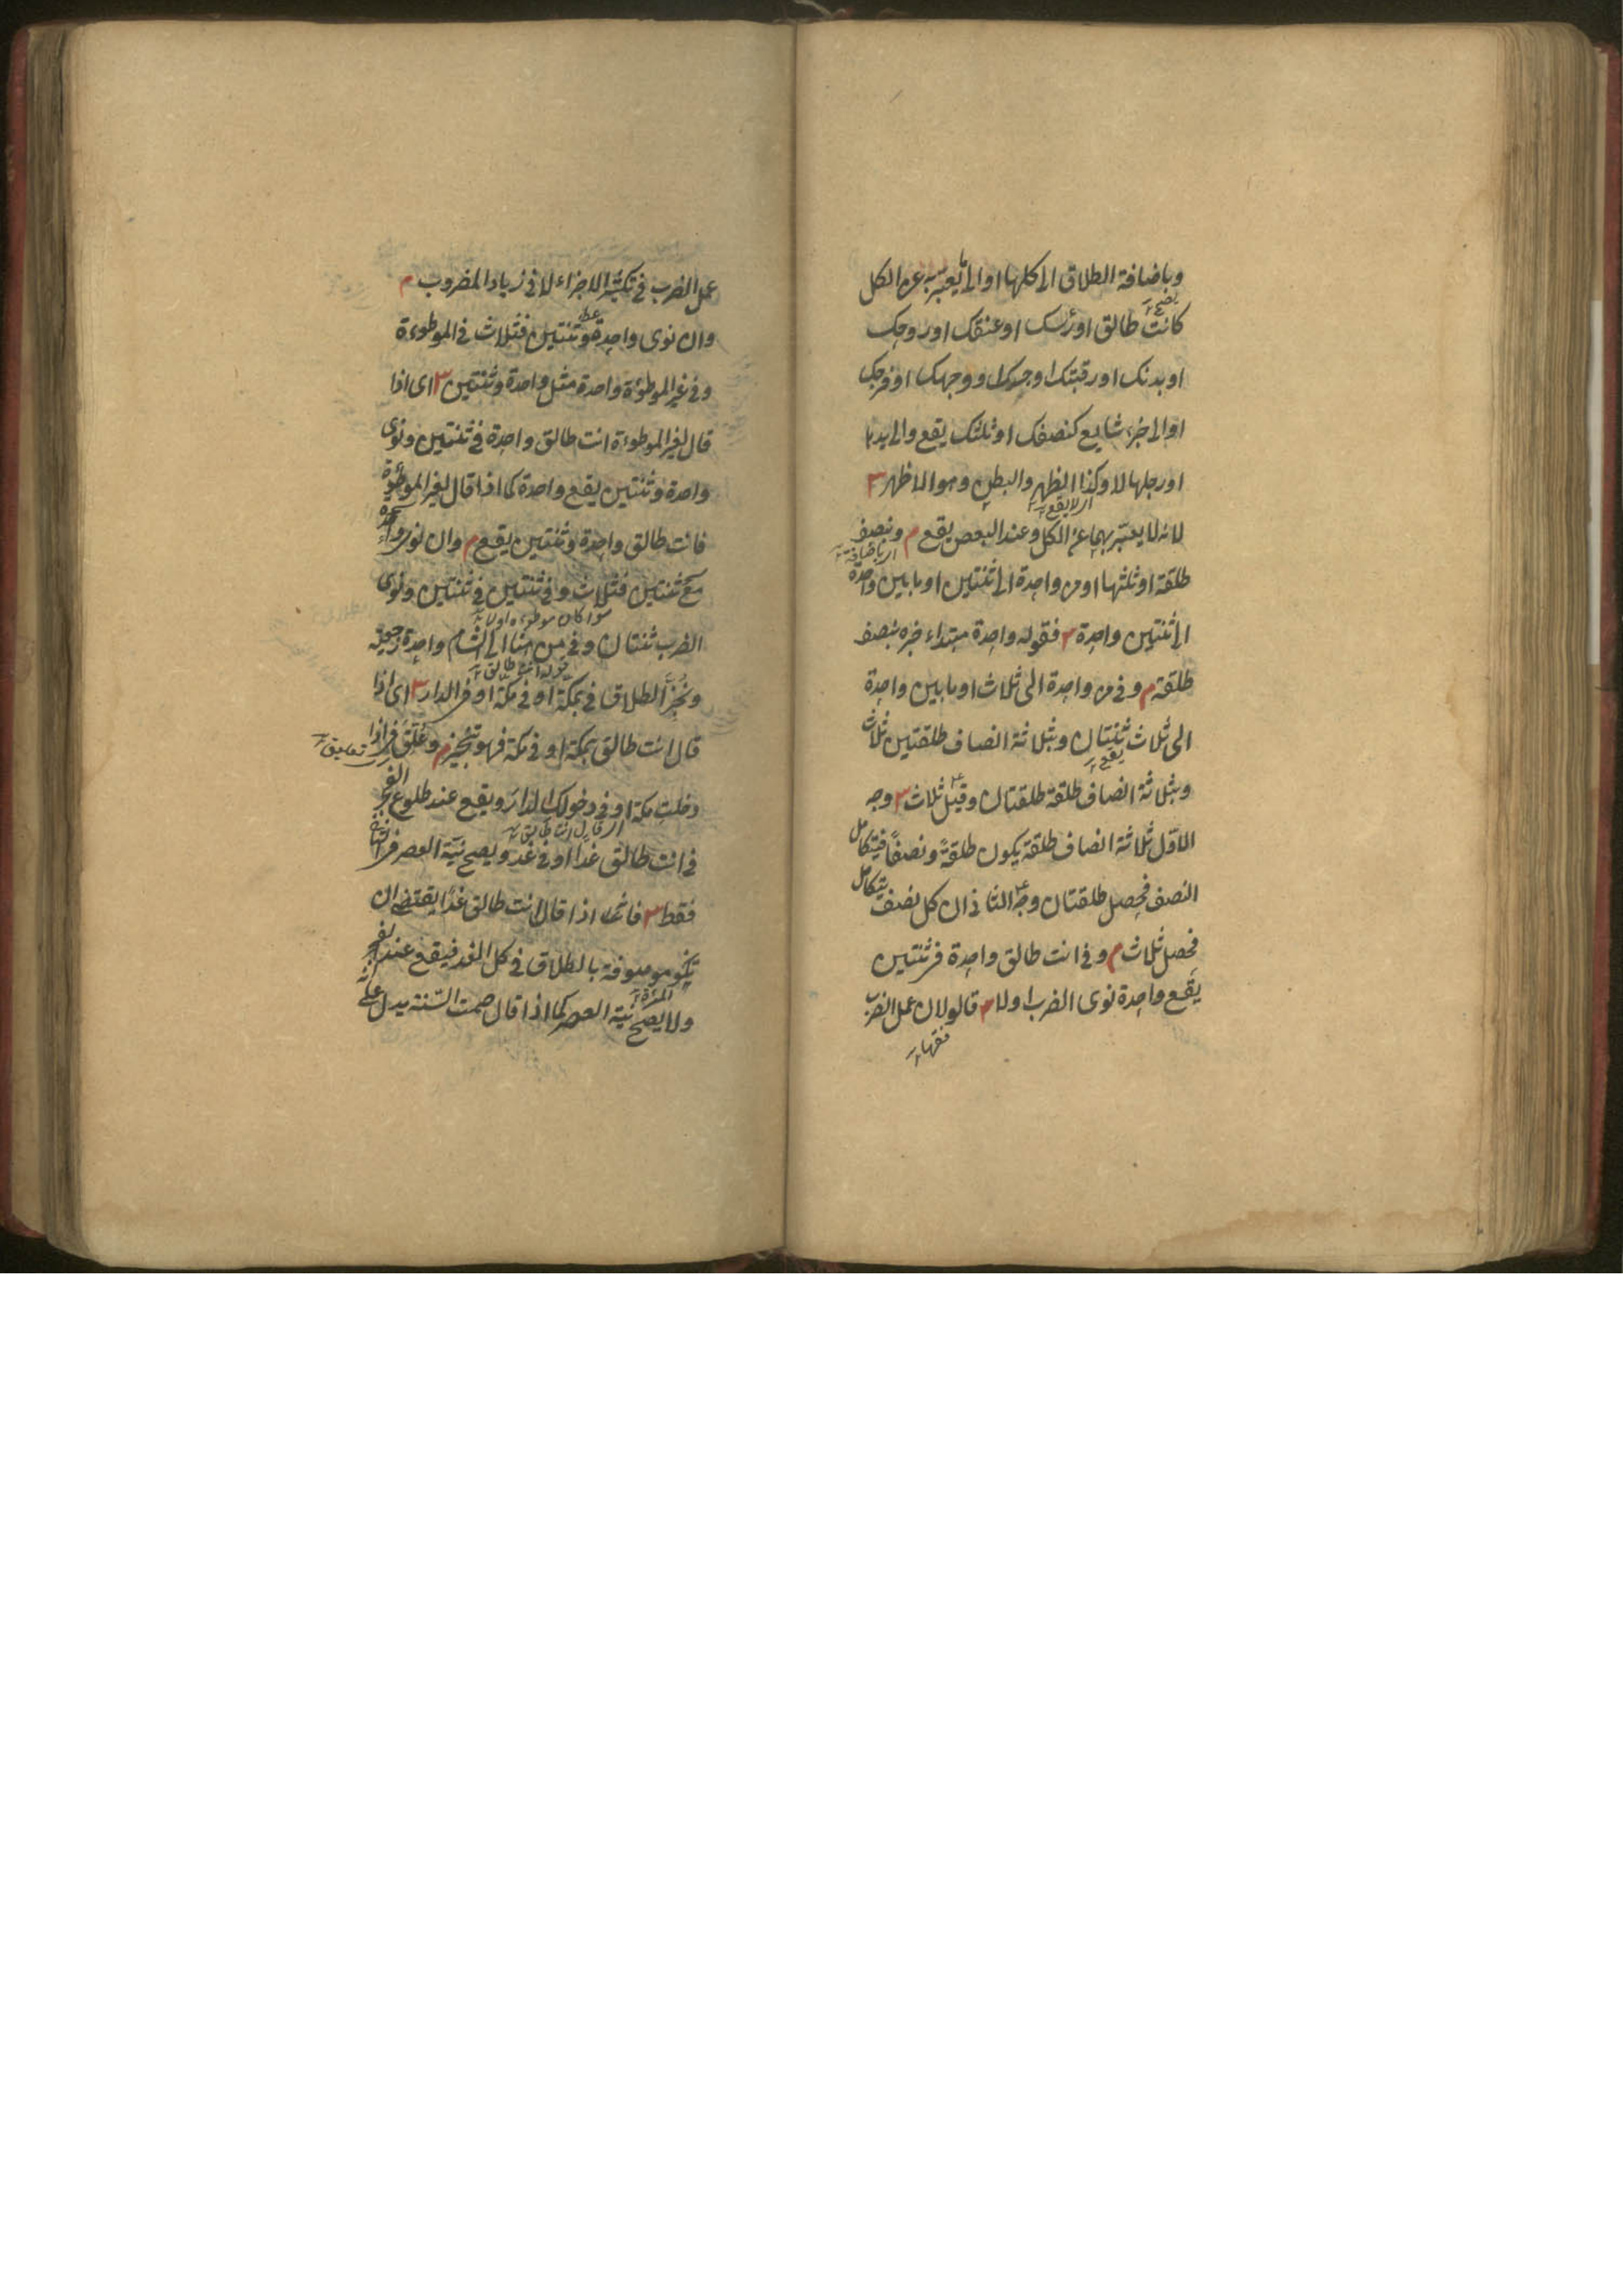 وباضافة الطلاق الى كلها او الى ما يعبر به عن الكل
يصح
كانت طالق او رأسك او عنقك او روحك
او بدنك او رقبتك او جسدك او وجهك او فرجك
او الى جزء شايع كنصفك او ثلثك يقع والى يدها
او رجلها لا وكذا الظهر والبطن وهو الاظهر ٣
اى لا يقع
لانه لا يعبر بها عن الكل وعند البعض يقع م ونصف
اى باضافة
طلقة او ثلثها او من واحدة الى ثنتين او ما بين واحدة
الى ثنتين واحدة ٣ فقوله واحدة مبتداء خبره بنصف
طلقة م وفى من واحدة الى ثلاث او ما بين واحدة
الى ثلاث ثنتان وبثلاثة انصاف طلقتين ثلاث
يقع
وبثلاثة انصاف طلقة طلقتان وقيل ثلاث ٣ وجه
الاول ثلاثة انصاف طلقة يكون طلقةً ونصفًا فيتكامل
النصف فحصل طلقتان وجه الثانى ان كل نصف يتكامل
فحصل ثلاث م وفى انت طالق واحدة فى ثنتين
يقع واحدة نوى الضرب اولا م قالوا لان عمل الضرب
فقهاء
عمل الضرب فى تكثير الاجزاء لا فى زيادة المضروب م
وان نوى واحدة وثنتين فثلاث فى الموطوءة
وفى غير الموطؤة واحدة مثل واحدة وثنتين ٣ اى اذا
قال لغير الموطوءة انت طالق واحدة فى ثنتين ونوى
واحدة وثنتين يقع واحدة كما اذا قال لغير الموطوءة
فانت طالق واحدة وثنتين يقع م وان نوى واحدة
مع ثنتين فثلاث وفى ثنتين فى ثنتين ونوى
سوا كان موطوءه اولا
الضرب ثنتان وفى من هنا الى الشام واحدة رجعية
قوله انت طالق
ونُجِّزَ الطلاق فى بمكة او فى مكة او فى الدار ٣ اى اذا
قال انت طالق بمكة او فى مكة فهو تنجيز م وعُلِّقَ فى اذا
تعليق
دخلت مكة او فى دخولك الدار ويقع عند طلوع الفجر
اى قال انت طالق
فى انت طالق غدا او فى غد ويصح نيّة العصر فى الثانى
فقط ٣ فانه اذا قال انت طالق غدًا يقتضى ان
تكون موصوفة بالطلاق فى كل الغد فيقع عند الفجر
المرأة
ولا يصح نية العصر كما اذا قال صمت السّنة يدل على انه